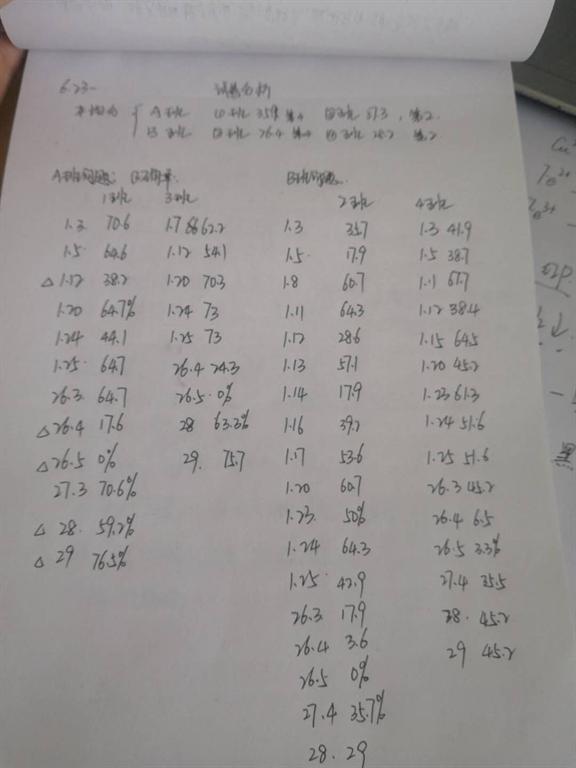 6.23 试卷分析
平均分 A班 ①班 35.9 第4 ③班 37.3, 第2
B班 ②班 26.4 第4 ④班 28.2 第2
A班问题: 正确率 B班问题
1班 3班 2班 4班
1.3 70.6 1.7 62.2 1.3 35.7 1.3 41.9
1.5 64.6 1.12 54.1 1.5 17.9 1.5 38.7
△1.12 38.2 1.20 70.3 1.8 60.7 1.11 67.7
1.20 64.7% 1.24 73 1.11 64.3 1.12 38.4
1.24 44.1 1.25 73 1.12 28.6 1.15 64.5
1.25 64.7 26.4 24.3 1.13 57.1 1.20 45.2
26.3 64.7 26.5 0% 1.14 17.9 1.23 61.3
△26.4 17.6 28 63.3% 1.16 39.2 1.24 51.6
△26.5 0% 29. 75.7 1.17 53.6 1.25 51.6
27.3 70.6% 1.20 60.7 26.3 45.2
△ 28. 59.2% 1.23. 50% 26.4 6.5
△ 29 76.5% 1.24 64.3 26.5 3.3%
1.25 42.9 27.4 35.5
26.3 17.9 28. 45.2
26.4 3.6 29 45.2
26.5 0%
27.4 35.7%
28. 29